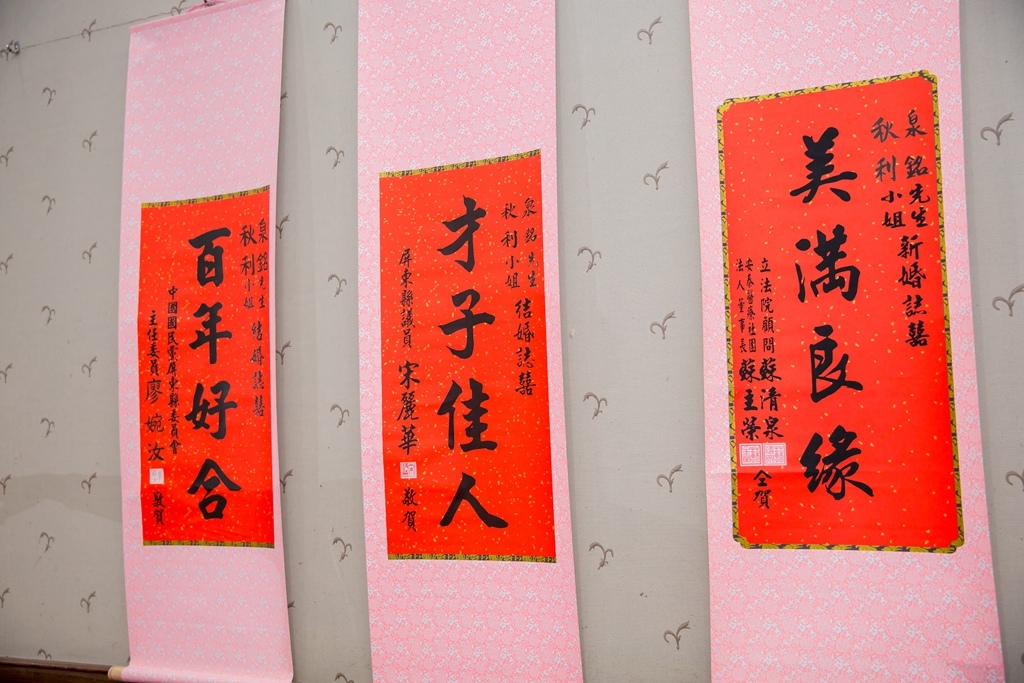 泉銘先生
秋利小姐
結婚誌囍
百年好合
中國國民黨屏東縣委員會
主任委員廖婉汝
敬賀
泉銘先生
秋利小姐
結婚誌囍
才子佳人
屏東縣議員 宋麗華
敬賀
泉銘先生
秋利小姐
新婚誌囍
美滿良緣
立法院顧問 蘇清泉
安泰醫療社團
法人董事長 蘇主榮
仝賀